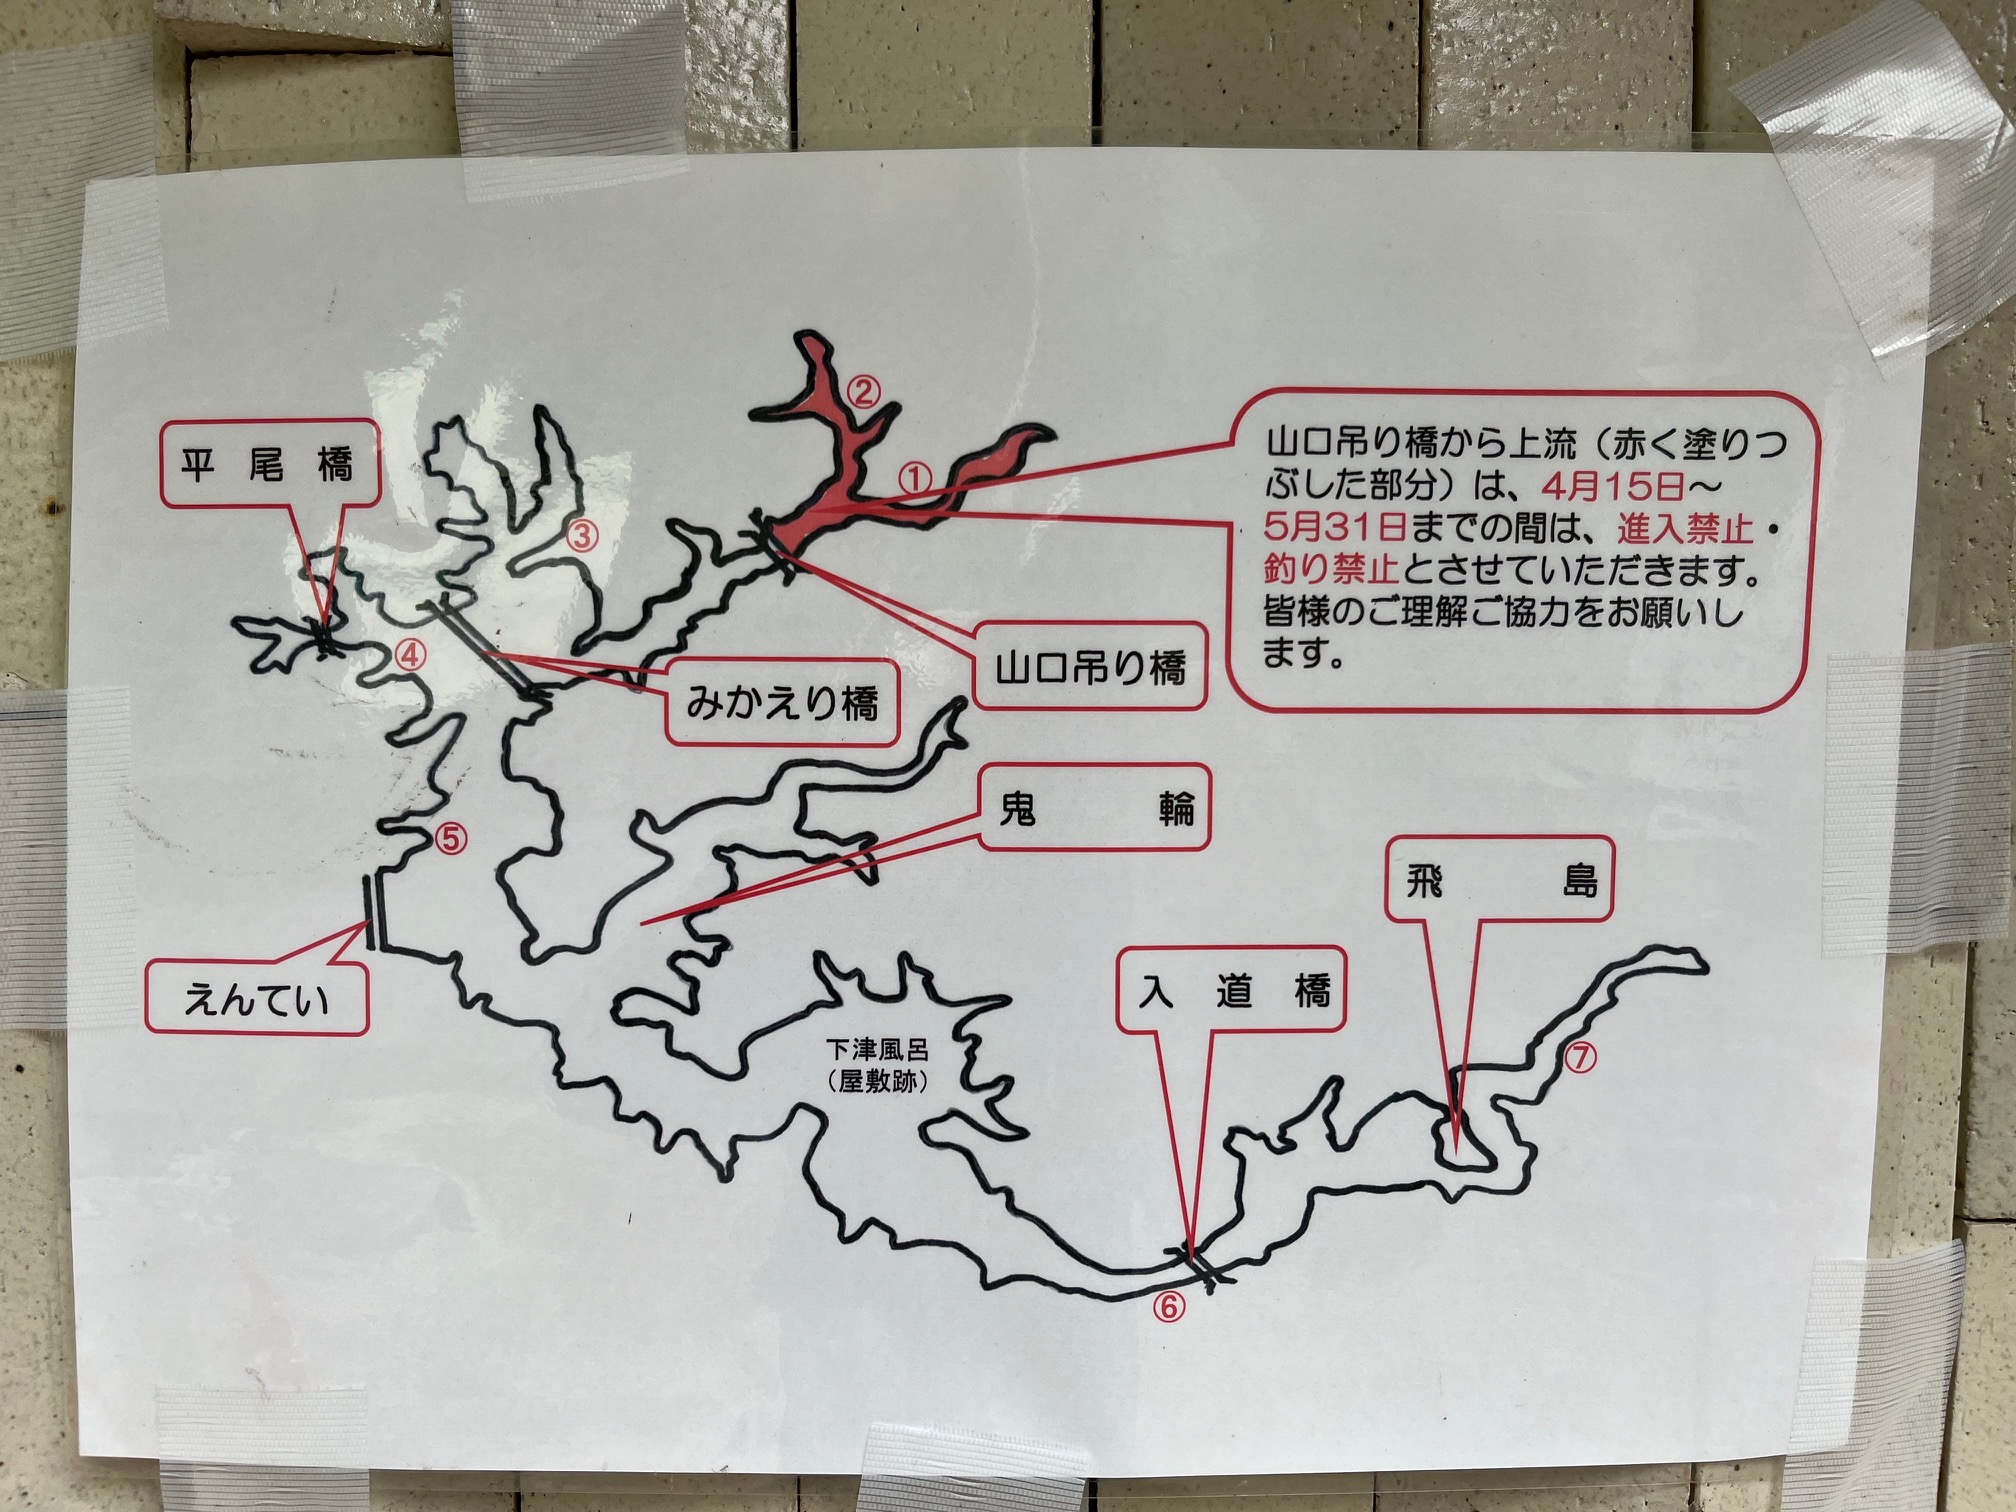 ②
①
山口吊り橋から上流（赤く塗りつ
ぶした部分）は、4月15日～
5月31日までの間は、進入禁止・
釣り禁止とさせていただきます。
皆様のご理解ご協力をお願いし
ます。
平尾橋
③
④
山口吊り橋
みかえり橋
鬼輪
⑤
飛島
えんてい
入道橋
下津風呂
（屋敷跡）
⑦
⑥